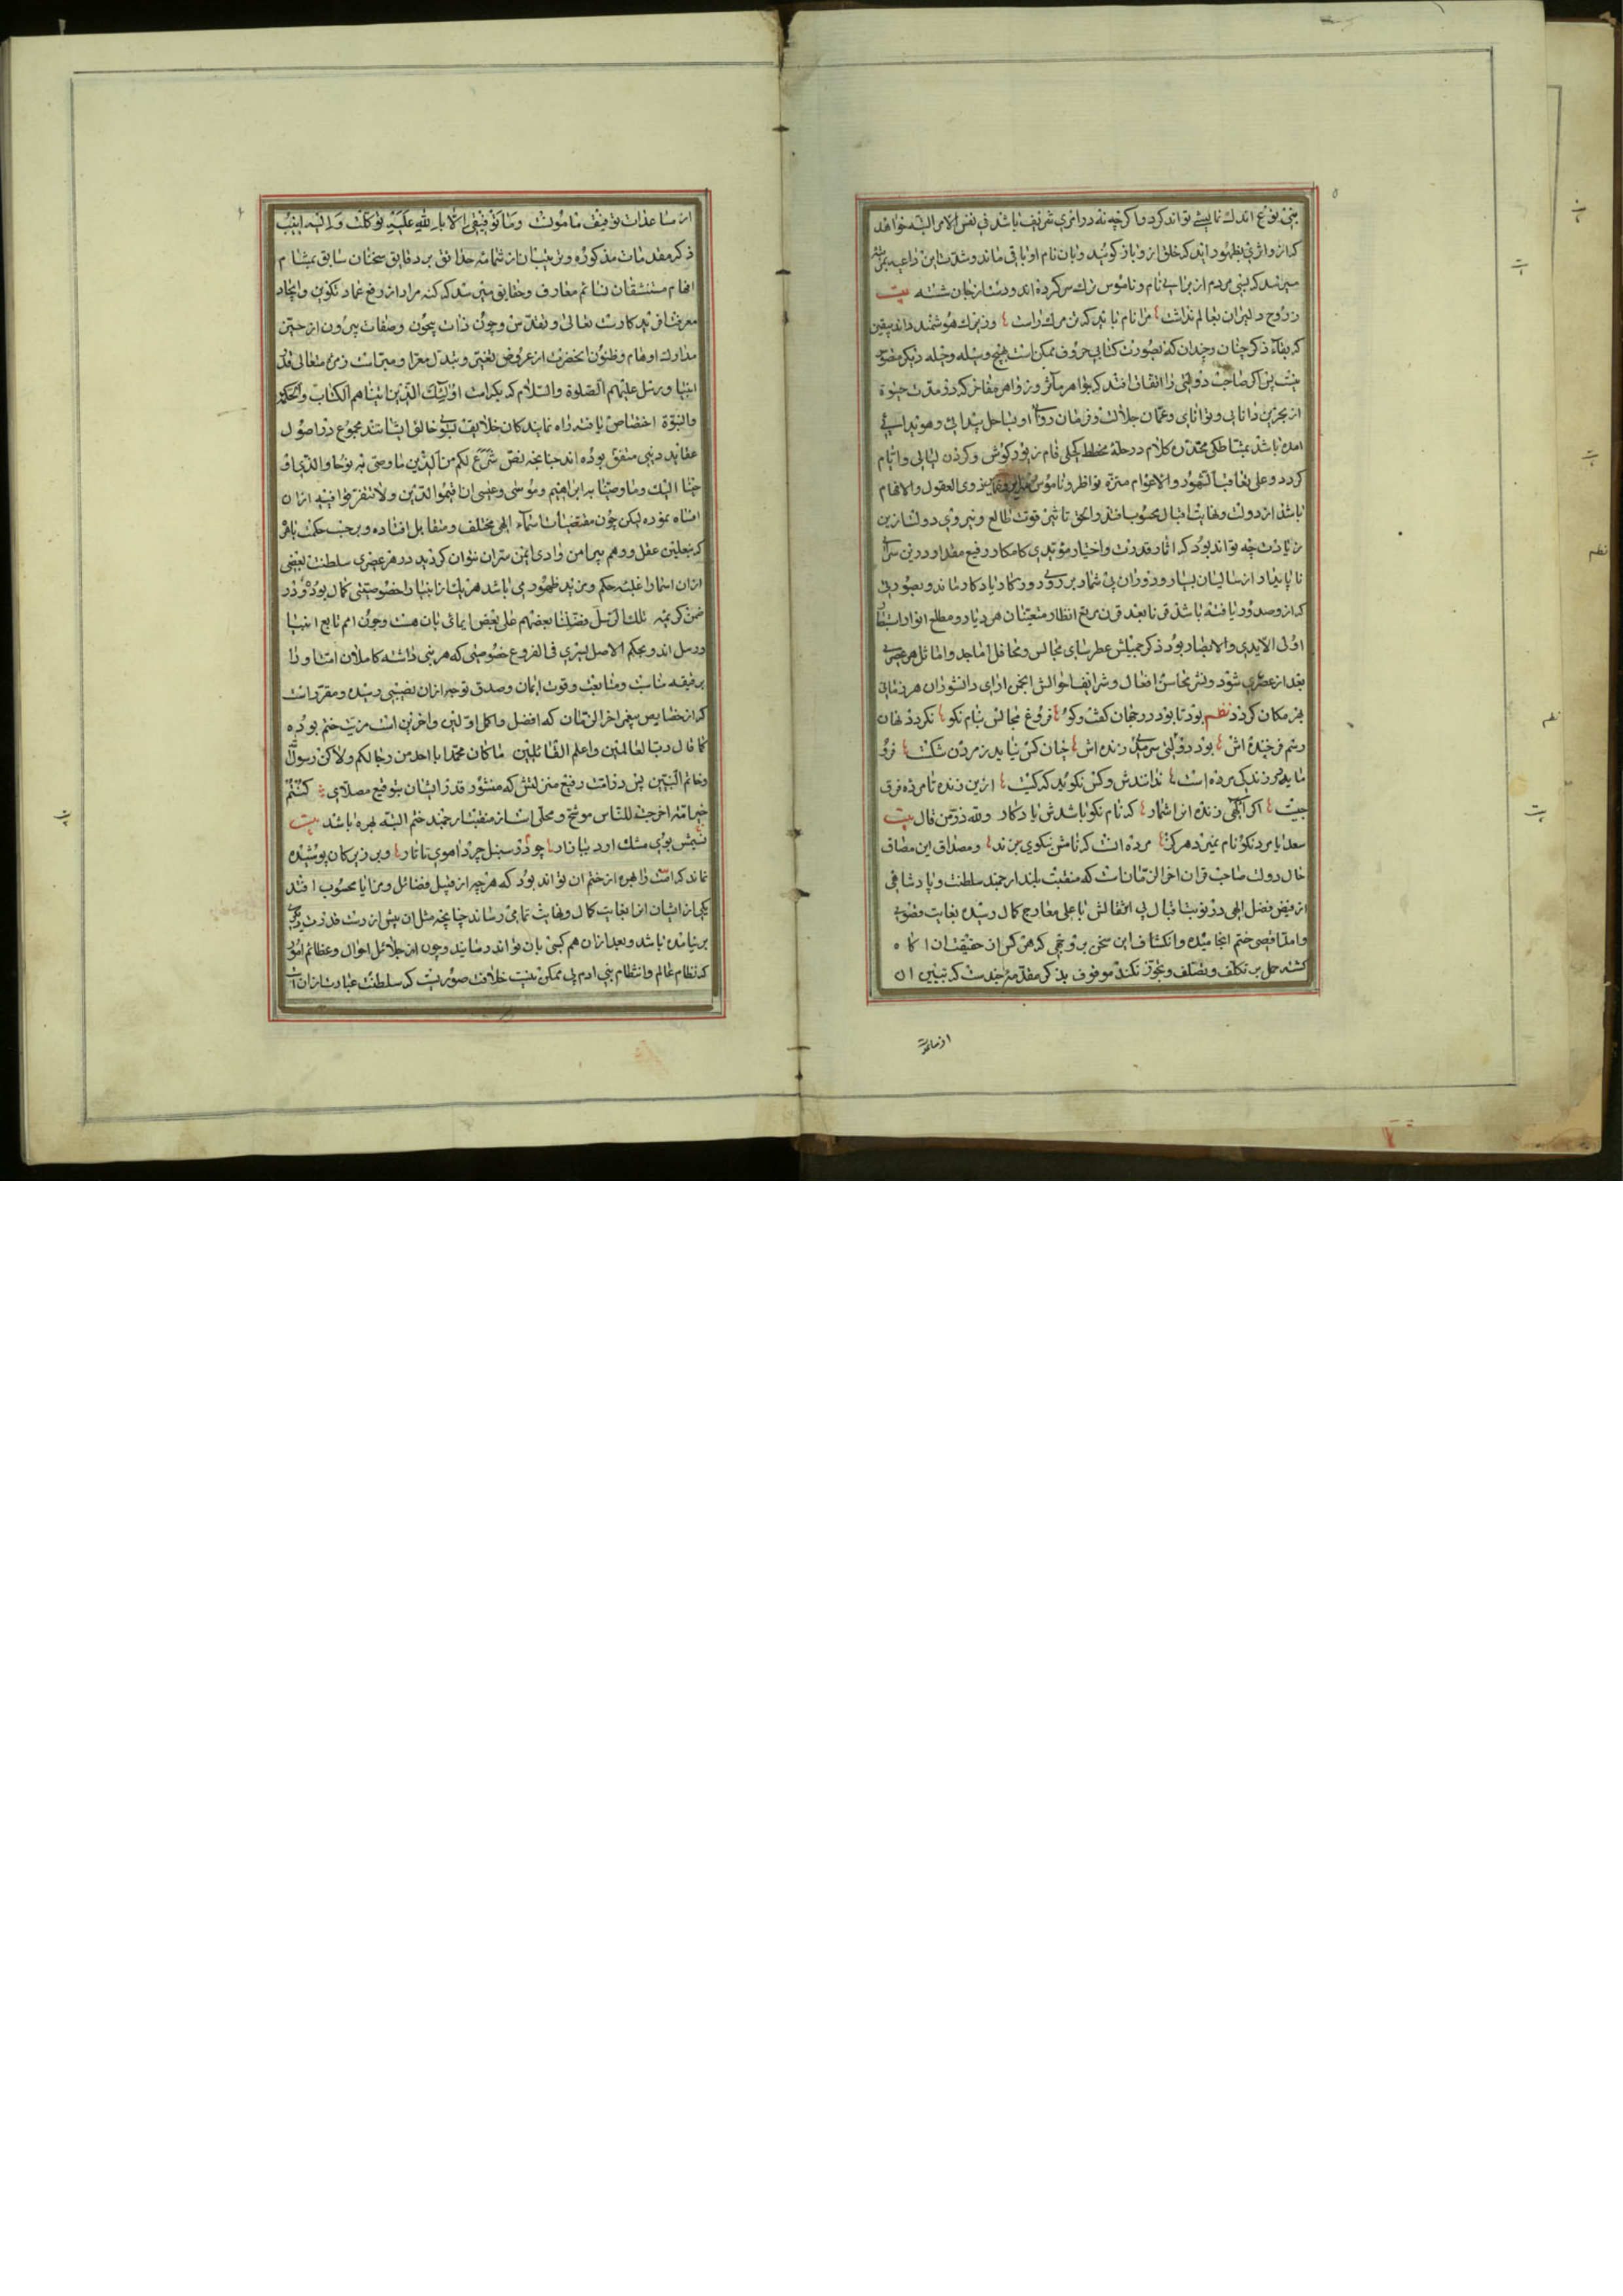 بنی نوع اندک نمایشی تواند کرد و اگر چه نه در امری شریف باشد فی نفس الامر البته خواهد
که ازو اثری بظهور آید که خلق ازو باز گویند و بآن نام او باقی ماند و شدت این داعیه
میرسد که بسی مردم از برای نام و ناموس ترک سر کرده اند و دست از جان شسته بیت
ز روح دلیران بعالم مرا نام باید که تن مرگ راست و نزد هوشمند داند بیقین
که بقاء ذکر چنان و چندان که بصورت کتابی حروف ممکن است بهیچ وسیله و حیله دیگر متصور
نیست پس اگر صاحب دولتی را اتفاق افتد که جواهر مآثر و زواهر مفاخر که در مدت حیوة
از بحرین دانایی و توانایی و عمان جلالت و فرمان روایی او بساحل پیدایی و هویدایی
آمده باشد بمشاطگی مخدره کلام در حله مخطط کحلی فام زیور گوش و گردن لیالی و ایام
گردد و علی تعاقب الشهور و الاعوام منزه نواظر ذوی العقول و الافهام
باشد از دولت و نهایت اقبال محسوب افتد و الحق تاثیر قوت طالع و نیروی دولت ازین
زیادت چه تواند بود که آثار قدرت و اختیار مؤیدی کامکار رفیع مقدار درین سرای
ناپایدار از سالیان بسیار و دوران بی شمار بر روی روزگار یادگار ماند و بصورتی
که ازو صدور یافته باشد قرنا بعد قرن مربع انظار متعینان هر دیار و مطلع انوار استبصار
اولی الایدی و الابصار بود ذکر جمیلش عطرسای مجالس و محافل اماجد و اماثل هر عصری
بعد از عصری شود و نشر محاسن افعال و شرایف احوالش انجمن آرای دانشوران هر زمانی
بهر مکان گردد نظم بود تا بود در جهان گفت و گو فروغ مجالس بنام نکو نگردد نهان
رسم فرخنده اش بود دولتی سرمدی زنده اش چنان کس نباید ز مردن شکست فرو
ماید در زندگی مرده است ندانندش و کس نگوید که کیست ازین زنده تا مرده فرق
چیست اگر آنگهی زنده اش شمار که نام نکو باشدش یادگار ولله در من قال بیت
سعدیا مرد نکو نام نمیرد هرگز مرده آنست که نامش بنکویی نبرند و مصداق این مصاق
حال دولت صاحب قران آخر الزمانست که منقبت بلند ارجمند سلطنت و پادشاهی
از فیض فضل الهی در نوبت اقبال بی انتقالش باعلی معارج کمال رسیده بغایت قصوی
و امد اقصی ختم انجامیده و انکشاف این سخن بر وجهی که هر کس از حقیقت آن آگاه
گشته حمل بر تکلف و تصلف و تجوز نکند موقوف بذکر مقدمه چندست که تبیین آن
از مساعدت
از مساعدات توفیق مامولست وما توفیقی الا بالله علیه توکلت و الیه انیب
ذکر مقدمات مذکوره و بر متبینان از شمایم حدائق بر دقایق سخنان سابق بمشام
افهام مستنشقان نسائم معارف و حقایق میرسد که کنه مراد از رفع عماد تکوین و ایجاد
معرفت آفریدگارست تعالی و تقدس و چون ذات بیچون و صفات بیرون از حیز
مدارک اوهام و ظنون آنحضرت از عروض تغیر و تبدل معرا و مبراست زمره متعالی قدر
انبیا و رسل علیهم الصلوة والسلام که بکرامت اولئک الذین اتیناهم الکتاب والحکم
والنبوة اختصاص یافته راه نمایندگان خلایق بسوی خالق ایشانند مجموع در اصول
عقاید دینی متفق بوده اند چنانچه نص شرع لکم من الدین ما وصی به نوحا والذی او
حینا الیک وما وصینا به ابراهیم وموسی وعیسی ان اقیموا الدین ولا تتفرقوا فیه ازان
انتباه نموده لیکن چون مقتضیات اسماء الهی مختلف و متقابل افتاده و بر حسب حکمت باهر
که بنعلین عقل و وهم پیرامن وادی ایمن سر آن نتوان گردید در هر عصری سلطنت بعضی
ازان اسما را غلبه حکم و مزید ظهور می باشد هر یک از انبیا را خصوصیتی کمال بوده و در
ضمن کریمه تلک الرسل فضلنا بعضهم علی بعض ایمائی بآن هست و چون امم تابع انبیا
و رسل اند و بحکم الاصل یسری فی الفروع خصوصیتی که هر نبی داشته کاملان امت او را
برقیقه مناسبت و متابعت و قوت ایمان و صدق توجه ازان نصیبی رسیده و مقررست
که از خصایص پیغمبر آخر الزمان که افضل و اکمل اولین و آخرین است مزیت ختم بوده
کما قال رب العالمین و اعلم القائلین ما کان محمد ابا احد من رجالکم ولاکن رسول الله
وخاتم النبیین پس در امت رفیع منزلتش که منشور قدر ایشان بتوقیع کنتم
خیر امة اخرجت للناس موشح و محلی است از منقبت ارجمند ختم البته بهره باشد بیت
نسیمش بوی مشک آرد ببازار چو در سنبل چرد آهوی تاتار و بر زیرکان پوشیده
نماند که امت را بهره از ختم آن تواند بود که هر چه از قبیل فضائل و مزایا محسوب افتد
یکی از ایشان آنرا بغایت کمال و نهایت تمامی رساند چنانچه مثل آن پیش از دست قدرت دیگری
بر نیامده باشد و بعد ازان هم کسی بآن نتواند رسانید و چون از جلائل احوال و عظائم امور
که نظام عالم و انتظام بنی آدم بی آن ممکن نیست خلافت صوریست که سلطنت عبارت ازان است